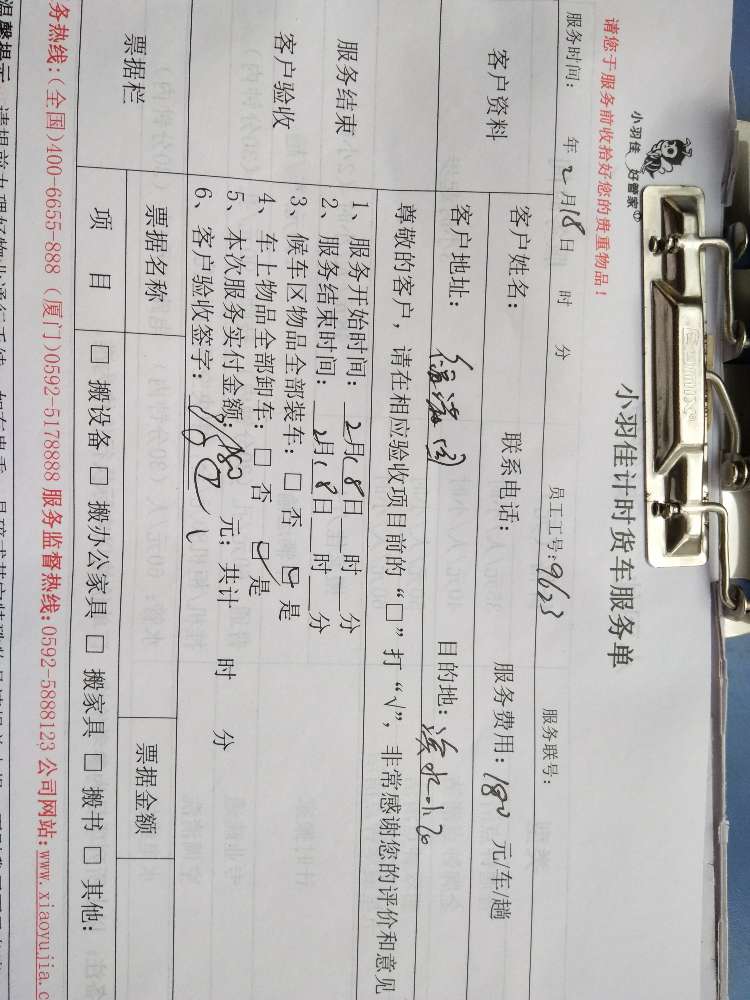 小羽佳 好管家
小羽佳计时货车服务单
请您于服务前收拾好您的贵重物品！
服务时间： 年2月18日 时 分 员工工号：9623 服务联号：
客户资料
客户姓名： 联系电话： 服务费用：180 元/车/趟
客户地址： 目的地：
尊敬的客户，请在相应验收项目前的“□”打“√”，非常感谢您的评价和意见
服务结束
客户验收
1、服务开始时间：2月18日 时 分
2、服务结束时间：2月18日 时 分
3、候车区物品全部装车：□ 否 ☑ 是
4、车上物品全部卸车：□ 否 ☑ 是
5、本次服务实付金额：180 元；共计 时 分
6、客户验收签字：
票据栏
票据名称 票据金额
项 目 □ 搬设备 □ 搬办公家具 □ 搬家具 □ 搬书 □ 其他：
务热线：（全国）400-6655-888 （厦门）0592-5178888 服务监督热线：0592-5888123 公司网站：www.xiaoyujia.c